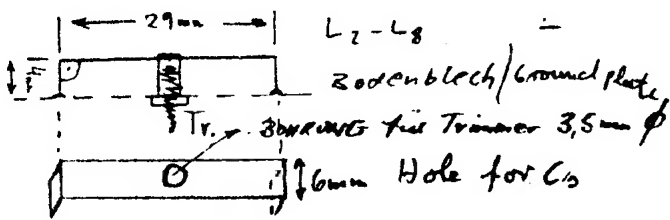 29mm
L2-L8
Bodenblech/Ground plate
Tr.
BOHRUNG für Trimmer 3,5mm ϕ
6mm
Hole for